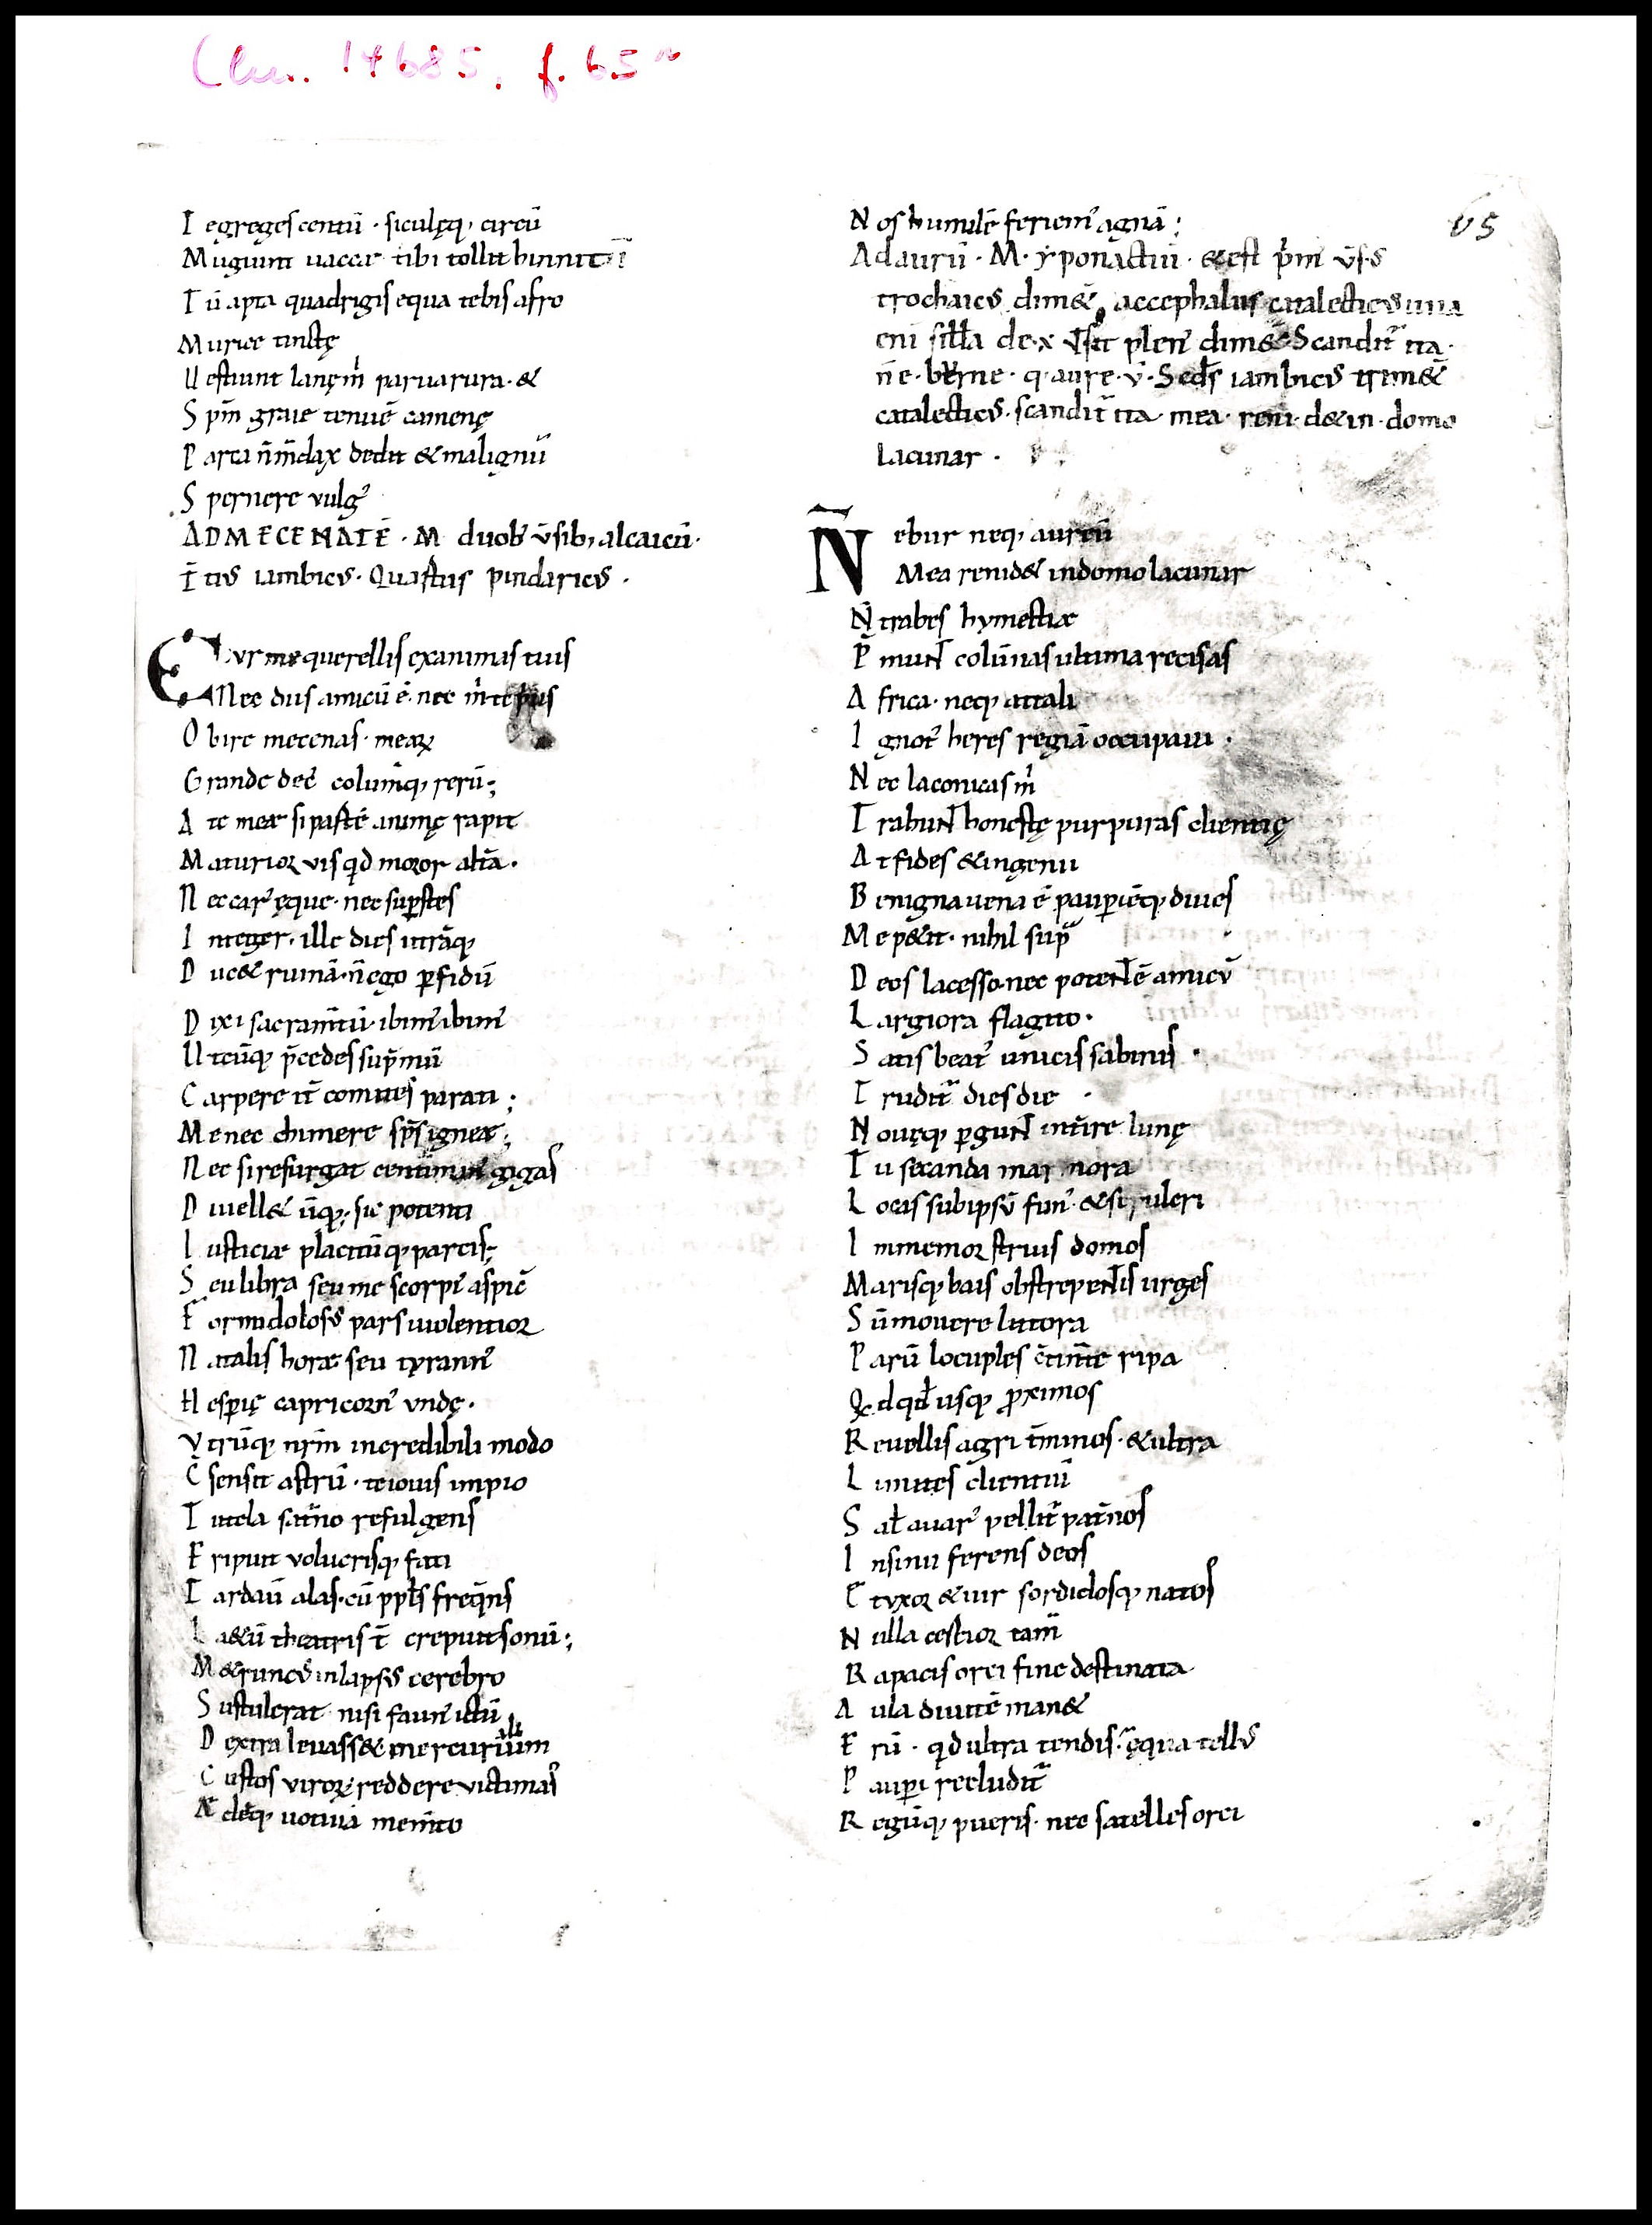 Clm. 14685, f. 65r
65
T e greges centū · siculęq; circū
M ugiunt uaccae tibi tollit hinnitū
T ū apta quadrigis equa te bis afro
M urice tinctę
U estiunt lanę m̊ parua rura · &
S pm̄ graie tenuē camenę
P arca n̄ m̄dax dedit & malignū
S pernere vulg᾽
AD MECENATĒ · M duob᾽ v̄sib; alcaicū ·
T̄ ti᾽ iambic᾽ · Quartus pindaric᾽ ·
Cur me querellis exanimas tuis
Nec diis amicū ē · nec m̊ te prius
O bire mecenas · mearꝝ
G rande dec᾽ columq; rerū;
A te meae si partē animę rapit
M aturior vis qd moror altā ·
N ec car᾽ ęque · nec supstes
I nteger · ille dies utrāq;
D uc& ruinā · n̄ ego pfidū
D ixi sacram̄tū · ibim᾽ ibim᾽
U tcūq; p̄cedes sup̄mū
C arpere it̄ comites parati;
M e nec chimere sp̄s igneae;
N ec si resurgat centiman᾽ gigas
D iuell& ūq;· sic potenti
I usticiae placitūq; parcis;
S eu libra seu me scorpi᾽ aspic̄
F ormidolos᾽ pars uiolentior
N atalis horae seu tyrann᾽
H espię capricorn᾽ vndę ·
V trūq; nr̄m incredibili modo
C̄ sensit astrū · te iouis impio
T utela sat᾽no refulgens
E ripuit volucrisq; fati
T ardau᾽ alas · cū ppls freq̄ns
L a&ū theatris t̄ crepuit sonū;
M e trunc᾽ inlaps᾽ cerebro
S ustulerat nisi faun᾽ ictū
D extra leuass& mercurialium
C ustos virorꝝ reddere victimas
Æ dēq; uotiuā mem̄to
N os humilē feriem᾽ agnā;
Ad aurū · M · yponactiū · & est p̄m᾽ v̄s᾽
trochaic᾽ dim& accephalus catalectic᾽ una
eni sill̄a de·x v̄ s̄it plen᾽ dim& Scandit᾽ ita ·
n̄ e · bur ne · q · aure · v̄ · Sec̄ds iambic᾽ trim&
catalectic᾽ · scandit᾽ ita · mea · reni · d& in · domo
lacunar ·
N̄ ebur neq; aureū
Mea renid& in domo lacunar
N̄ trabes hymettiae
P munt colūnas ultima recisas
A frica · neq; attali
I gnot᾽ heres regiā occupaui ·
N ec laconicas m̊
T rahunt honestę purpuras clientę
A t fides & ingenii
B enigna uena ē paupēq; diues
M e p&it · nihil sup᾽
D eos lacesso · nec potentē amicū
L argiora flagito ·
S atis beat᾽ unicis sabinis ·
T rudit᾽ dies die ·
N ouęq; pgunt int̄ire lunę
T u secanda mar mora
L ocas sub ipsū fun᾽ · & sepulcri
I mmemor struis domos
M arisq; bais obstrepentis urges
S ūmouere litora
P arū locuples c̄tin̄te ripa
Q d qd usq; pximos
R euellis agri t̄minos · & ultra
L imites clientiū
S al̄ auar᾽ pellit᾽ pat̄nos
I n sinu ferens deos
E t vxor & uir sordidosq; natos
N ulla certior tam̄
R apacis orci fine destinata
A ula diuitē man&
E rū · qd ultra tendis · ęqua tell᾽
P aupi recludit᾽
R egūq; pueris · nec satelles orci